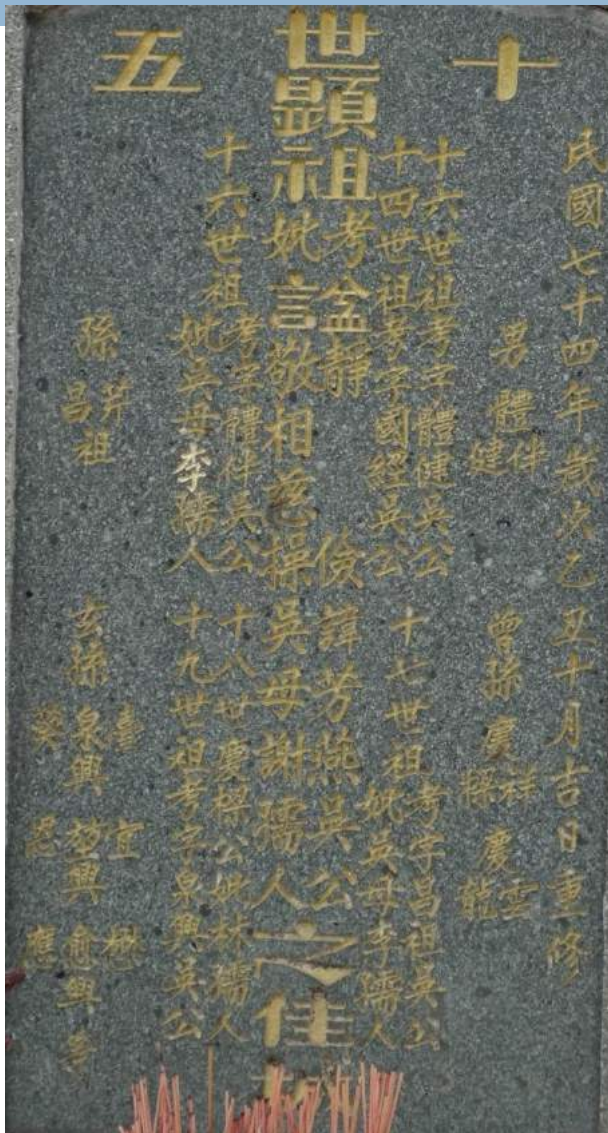 十五
世
民國七十四年歲次乙丑十月吉日重修
男體健伴
曾孫慶祥 慶雲
十六世祖考字體健吳公
十四世祖考字國經吳公
十七世祖考字昌祖吳公
妣吳母李孺人
顯祖考 靜 儉諱芳燕吳公
妣言敬相慈操吳母謝孺人
之佳
十六世祖考字體伴吳公
妣吳母李孺人
十八世慶 公妣林孺人
十九世祖考字泉興吳公
孫 昌祖
玄孫 泉興 興 興 等